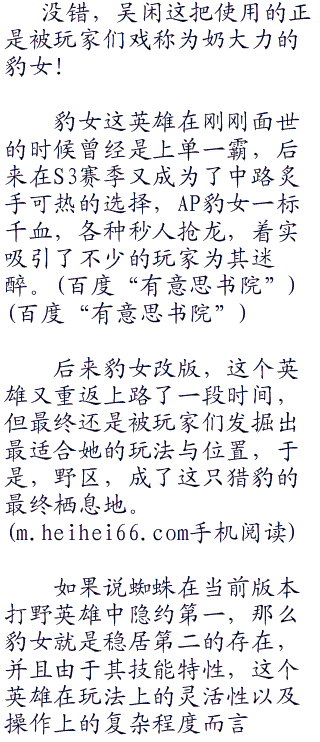 没错，吴闲这把使用的正
是被玩家们戏称为奶大力的
豹女！
豹女这英雄在刚刚面世
的时候曾经是上单一霸，后
来在S3赛季又成为了中路炙
手可热的选择，AP豹女一标
千血，各种秒人抢龙，着实
吸引了不少的玩家为其迷
醉。(百度“有意思书院”)
(百度“有意思书院”)
后来豹女改版，这个英
雄又重返上路了一段时间，
但最终还是被玩家们发掘出
最适合她的玩法与位置，于
是，野区，成了这只猎豹的
最终栖息地。
(m.heihei66.com手机阅读)
如果说蜘蛛在当前版本
打野英雄中隐约第一，那么
豹女就是稳居第二的存在，
并且由于其技能特性，这个
英雄在玩法上的灵活性以及
操作上的复杂程度而言